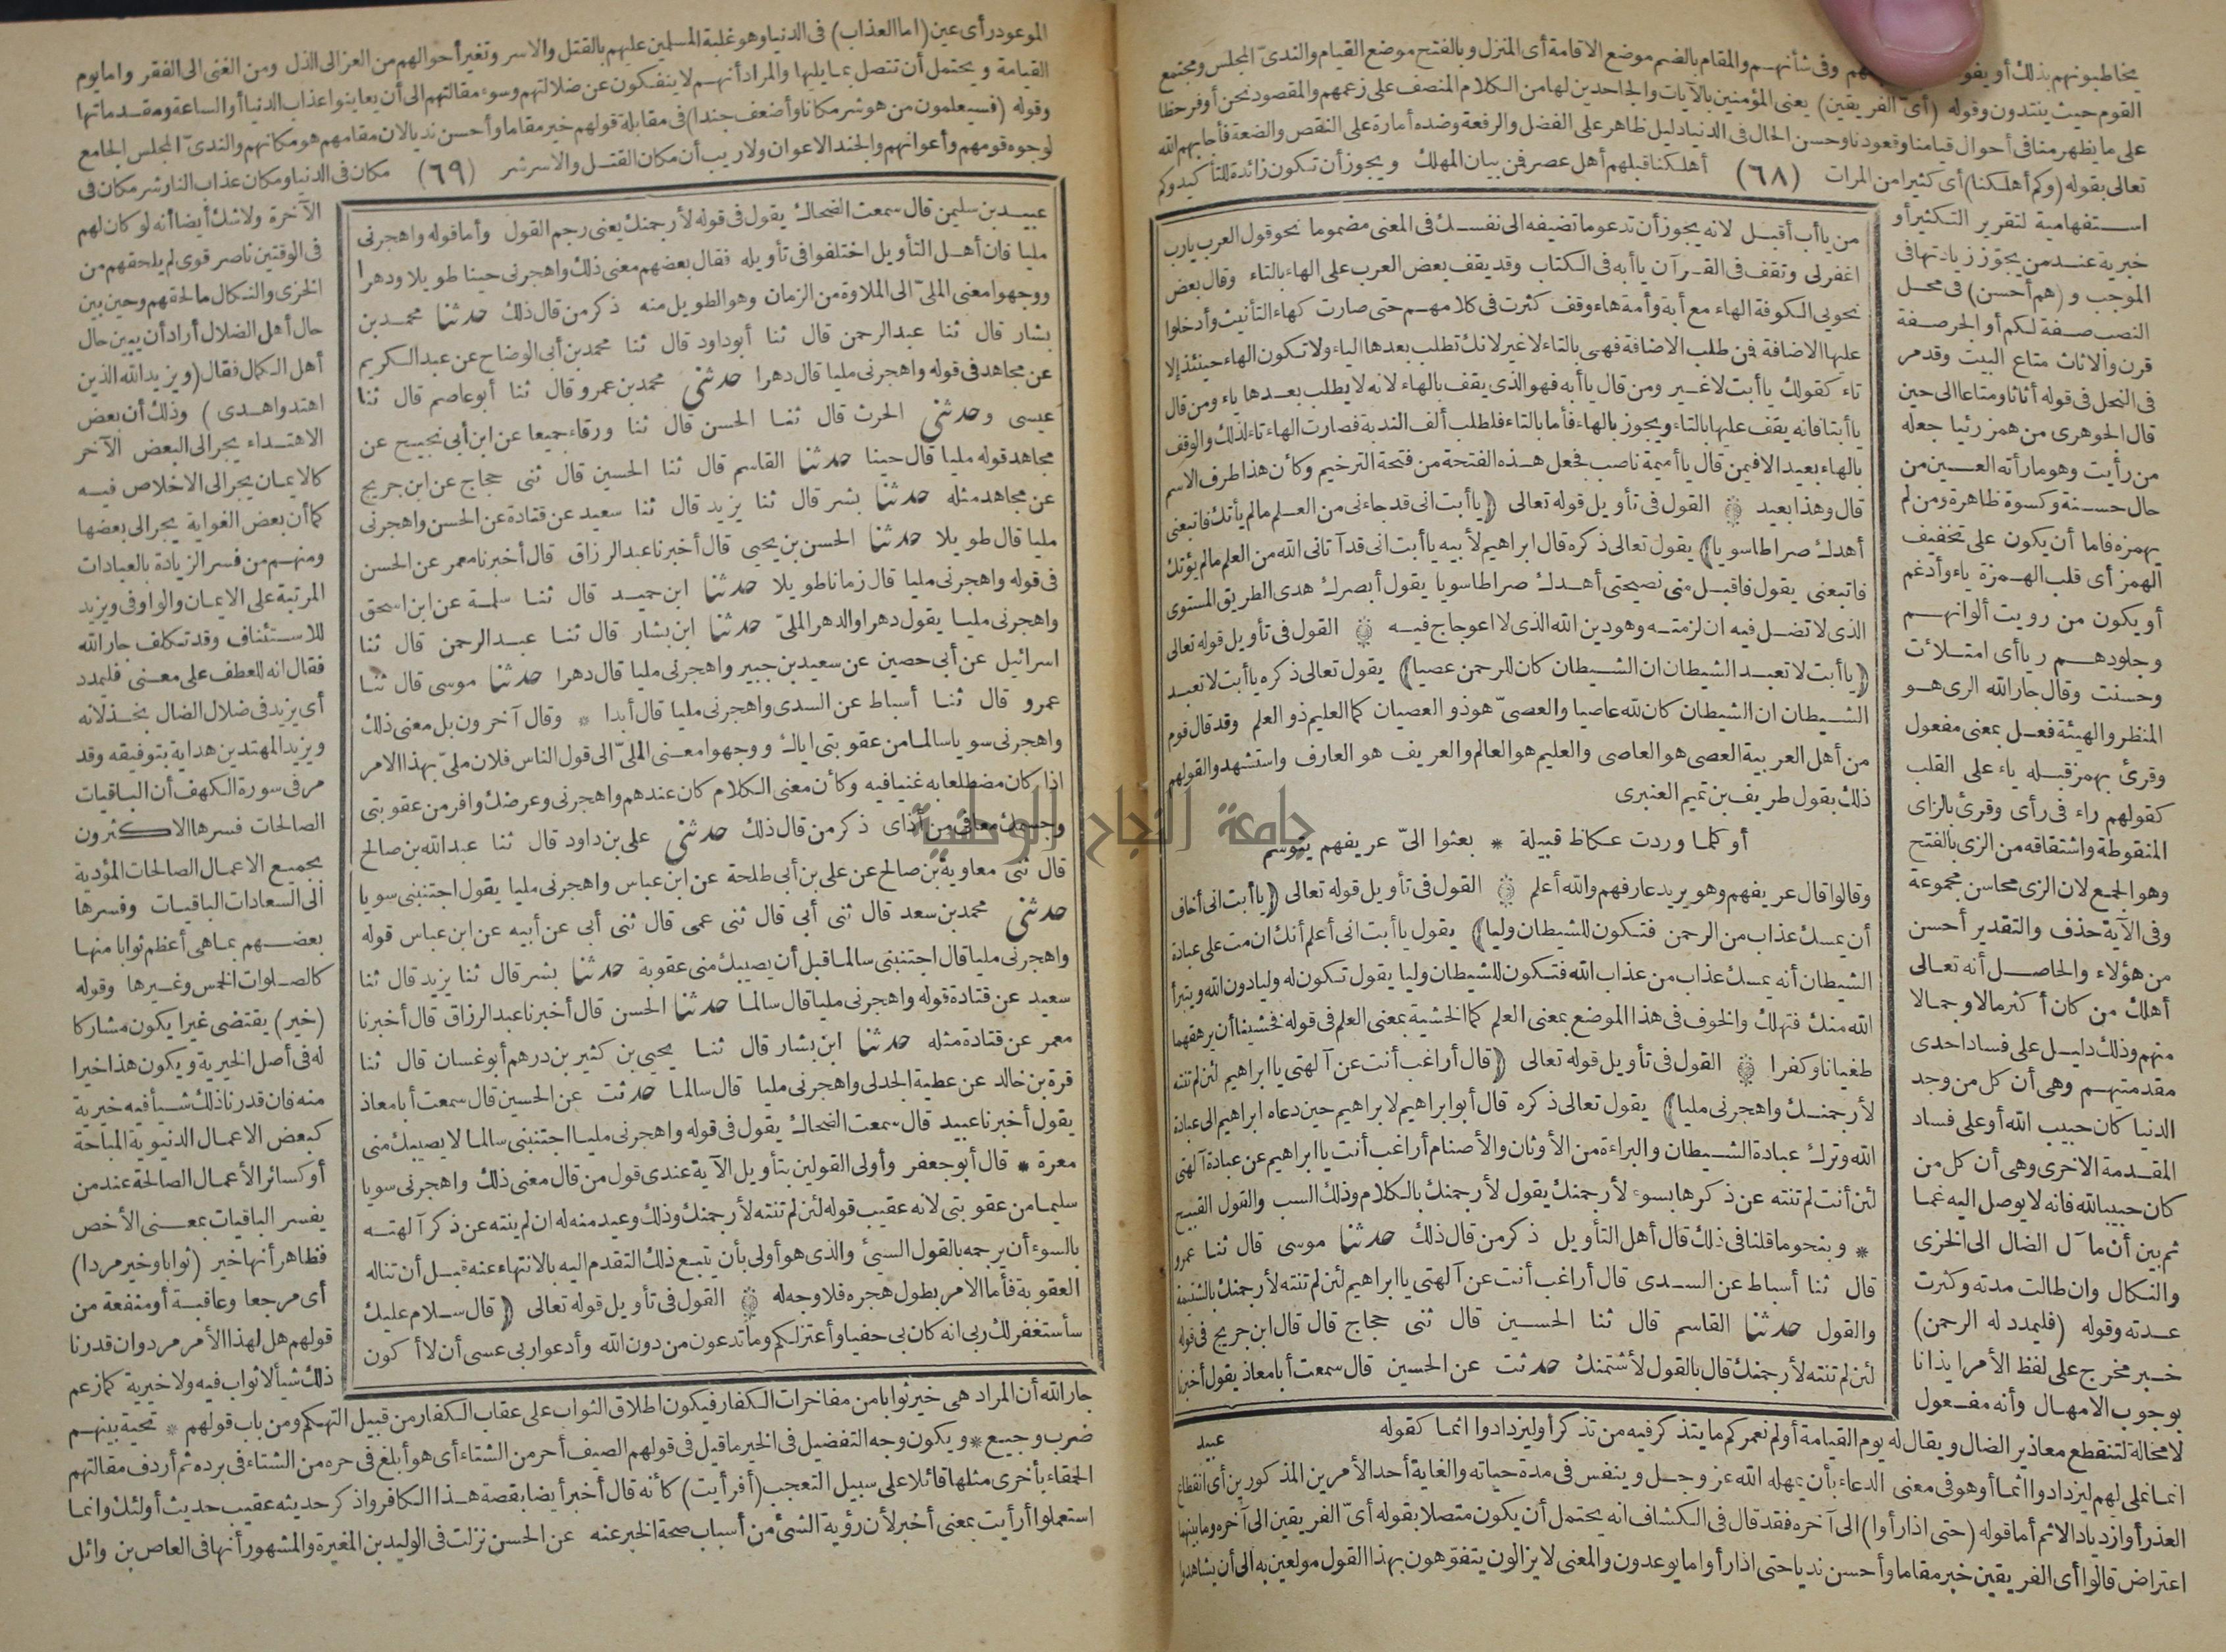 يخاطبونهم بذلك أو يفو وفى شأنهم والمقام بالضم موضع الاقامة أى المنزل وبالفتح موضع القيام والندىّ المجلس ومجتمع
القوم حيث ينتدون وقوله (أىّ الفريقين) يعنى المؤمنين بالآيات والجاحدين لها من الكلام المنصف على زعمهم والمقصود نحن أوفر حظا
على ما يظهر منا فى أحوال قيامنا وقعودنا وحسن الحال فى الدنيا دليل ظاهر على الفضل والرفعة وضده أمارة على النقص والضعة فأجابهم الله
تعالى بقوله (وكم أهلكنا) أى كثيرا من المرات (٦٨) أهلكنا قبلهم أهل عصر فمن بيان المهلك ويجوز أن تكون زائدة للتأكيد وكم
استفهامية لتقرير التكثير أو
خبرية عند من يجوّز زيادتها فى
الموجب و (هم أحسن) فى محل
النصب صفة لكم أو الجر صفة
قرن والأثاث متاع البيت وقد مر
فى النحل فى قوله أثاثا ومتاعا الى حين
قال الجوهرى من همز رئيا جعله
من رأيت وهو ما رأته العين من
حال حسنة وكسوة ظاهرة ومن لم
يهمزه فاما أن يكون على تخفيف
الهمز أى قلب الهمزة ياء وأدغم
أو يكون من رويت ألوانهم
وجلودهم ريا أى امتلأت
وحسنت وقال جار الله الرى هو
المنظر والهيئة فعل بمعنى مفعول
وقرئ بهمز قبله ياء على القلب
كقولهم راء فى رأى وقرئ بالزاى
المنقوطة واشتقاقه من الزى بالفتح
وهو الجمع لان الزى محاسن مجموعة
وفى الآية حذف والتقدير أحسن
من هؤلاء والحاصل أنه تعالى
أهلك من كان أكثر مالا وجمالا
منهم وذلك دليل على فساد احدى
مقدمتيهم وهى أن كل من وجد
الدنيا كان حبيب الله أو على فساد
المقدمة الاخرى وهى أن كل من
كان حبيبا لله فانه لا يوصل اليه غما
ثم بين أن مآل الضال الى الخزى
والنكال وان طالت مدته وكثرت
عدته وقوله (فليمدد له الرحمن)
خبر مخرج على لفظ الأمر ايذانا
بوجوب الامهال وأنه مفعول
من يا أب أقبل لانه يجوز أن تدعو ما تضيفه الى نفسك فى المعنى مضموما نحو قول العرب يا رب
اغفر لى وتقف فى القرآن يا أبه فى الكتاب وقد يقف بعض العرب على الهاء بالتاء وقال بعض
نحويى الكوفة الهاء مع أبة وأمة هاء وقف كثرت فى كلامهم حتى صارت كهاء التأنيث وأدخلوا
عليها الاضافة فمن طلب الاضافة فهى بالتاء لا غير لانك تطلب بعدها الياء ولا تكون الهاء حينئذ إلا
تاء كقولك يا أبت لا غير ومن قال يا أبه فهو الذى يقف بالهاء لانه لا يطلب بعدها ياء ومن قال
يا أبتا فانه يقف عليها بالتاء ويجوز بالهاء فأما بالتاء فلطلب ألف الندبة فصارت الهاء تاء لذلك والوقف
بالهاء بعيد الا فيمن قال يا أميمة ناصب فجعل هذه الفتحة من فتحة الترخيم وكأن هذا طرف الاسم
قال وهذا بعيد القول فى تأويل قوله تعالى (يا أبت انى قد جاءنى من العلم ما لم يأتك فاتبعنى
أهدك صراطا سويا) يقول تعالى ذكره قال ابراهيم لأبيه يا أبت انى قد آتانى الله من العلم ما لم يؤتك
فاتبعنى يقول فاقبل منى نصيحتى أهدك صراطا سويا يقول أبصرك هدى الطريق المستوى
الذى لا تضل فيه ان لزمته وهو دين الله الذى لا اعوجاج فيه القول فى تأويل قوله تعالى
(يا أبت لا تعبد الشيطان ان الشيطان كان للرحمن عصيا) يقول تعالى ذكره يا أبت لا تعبد
الشيطان ان الشيطان كان لله عاصيا والعصىّ هو ذو العصيان كما العليم ذو العلم وقد قال قوم
من أهل العربية العصى هو العاصى والعليم هو العالم والعريف هو العارف واستشهدوا لقولهم
ذلك بقول طريف بن تميم العنبرى
أو كلما وردت عكاظ قبيلة * بعثوا الىّ عريفهم يتوسم
وقالوا قال عريفهم وهو يريد عارفهم والله أعلم القول فى تأويل قوله تعالى (يا أبت انى أخاف
أن يمسك عذاب من الرحمن فتكون للشيطان وليا) يقول يا أبت انى أعلم أنك ان مت على عبادة
الشيطان أنه يمسك عذاب من عذاب الله فتكون للشيطان وليا يقول تكون له وليا دون الله ويتبرأ
الله منك فتهلك والخوف فى هذا الموضع بمعنى العلم كما الخشية بمعنى العلم فى قوله فخشينا أن يرهقهما
طغيانا وكفرا القول فى تأويل قوله تعالى (قال أراغب أنت عن آلهتى يا ابراهيم لئن لم تنته
لأرجمنك واهجرنى مليا) يقول تعالى ذكره قال أبو ابراهيم لابراهيم حين دعاه ابراهيم الى عبادة
الله وترك عبادة الشيطان والبراءة من الأوثان والأصنام أراغب أنت يا ابراهيم عن عبادة آلهتى
لئن أنت لم تنته عن ذكرها بسوء لأرجمنك يقول لأرجمنك بالكلام وذلك السب والقول القبيح
* وبنحو ما قلنا فى ذلك قال أهل التأويل ذكر من قال ذلك حدثنا موسى قال ثنا عمرو
قال ثنا أسباط عن السدى قال أراغب أنت عن آلهتى يا ابراهيم لئن لم تنته لأرجمنك بالشتيمة
والقول حدثنا القاسم قال ثنا الحسين قال ثنى حجاج قال قال ابن جريج فى قوله
لئن لم تنته لأرجمنك قال بالقول لأشتمنك حدثت عن الحسين قال سمعت أبا معاذ يقول أخبرنا
عبيد
لا محالة لتنقطع معاذير الضال ويقال له يوم القيامة أو لم نعمركم ما يتذكر فيه من تذكر أو ليزدادوا اثما كقوله
انما نملى لهم ليزدادوا اثما أو هو فى معنى الدعاء بأن يمهله الله عز وجل وينفس فى مدة حياته والغاية أحد الأمرين المذكورين أى انقطاع
العذر أو ازدياد الاثم أما قوله (حتى اذا رأوا) الى آخره فقد قال فى الكشاف انه يحتمل أن يكون متصلا بقوله أىّ الفريقين الى آخره وما بينهما
اعتراض قالوا أى الفريقين خير مقاما وأحسن نديا حتى اذا رأوا ما يوعدون والمعنى لا يزالون يتفوّهون بهذا القول مولعين به الى أن يشاهدوا
الموعود رأى عين (اما العذاب) فى الدنيا وهو غلبة المسلمين عليهم بالقتل والاسر وتغير أحوالهم من العز الى الذل ومن الغنى الى الفقر واما يوم
القيامة ويحتمل أن تتصل بما يليها والمراد أنهم لا ينفكون عن ضلالتهم وسوء مقالتهم الى أن يعاينوا عذاب الدنيا أو الساعة ومقدماتها
وقوله (فسيعلمون من هو شر مكانا وأضعف جندا) فى مقابلة قولهم خير مقاما وأحسن نديا لان مقامهم هو مكانهم والندىّ المجلس الجامع
لوجوه قومهم وأعوانهم والجند الاعوان ولا ريب أن مكان القتل والاسر شر (٦٩) مكان فى الدنيا ومكان عذاب النار شر مكان فى
عبيد بن سليمن قال سمعت الضحاك يقول فى قوله لأرجمنك يعنى رجم القول وأما قوله واهجرنى
مليا فان أهل التأويل اختلفوا فى تأويله فقال بعضهم معنى ذلك واهجرنى حينا طويلا ودهرا
ووجهوا معنى الملىّ الى الملاوة من الزمان وهو الطويل منه ذكر من قال ذلك حدثنا محمد بن
بشار قال ثنا عبد الرحمن قال ثنا أبو داود قال ثنا محمد بن أبى الوضاح عن عبد الكريم
عن مجاهد فى قوله واهجرنى مليا قال دهرا حدثنى محمد بن عمرو قال ثنا أبو عاصم قال ثنا
عيسى وحدثنى الحرث قال ثنا الحسن قال ثنا ورقاء جميعا عن ابن أبى نجيح عن
مجاهد قوله مليا قال حينا حدثنا القاسم قال ثنا الحسين قال ثنى حجاج عن ابن جريج
عن مجاهد مثله حدثنا بشر قال ثنا يزيد قال ثنا سعيد عن قتادة عن الحسن واهجرنى
مليا قال طويلا حدثنا الحسن بن يحيى قال أخبرنا عبد الرزاق قال أخبرنا معمر عن الحسن
فى قوله واهجرنى مليا قال زمانا طويلا حدثنا ابن حميد قال ثنا سلمة عن ابن اسحق
واهجرنى مليا يقول دهرا والدهر الملىّ حدثنا ابن بشار قال ثنا عبد الرحمن قال ثنا
اسرائيل عن أبى حصين عن سعيد بن جبير واهجرنى مليا قال دهرا حدثنا موسى قال ثنا
عمرو قال ثنا أسباط عن السدى واهجرنى مليا قال أبدا * وقال آخرون بل معنى ذلك
واهجرنى سويا سالما من عقوبتى اياك ووجهوا معنى الملىّ الى قول الناس فلان ملىّ بهذا الامر
اذا كان مضطلعا به غنيا فيه وكأن معنى الكلام كان عندهم واهجرنى وعرضك وافر من عقوبتى
وجسمك معافى من أذاى ذكر من قال ذلك حدثنى على بن داود قال ثنا عبد الله بن صالح
قال ثنى معاوية بن صالح عن على بن أبى طلحة عن ابن عباس واهجرنى مليا يقول اجتنبنى سويا
حدثنى محمد بن سعد قال ثنى أبى قال ثنى عمى قال ثنى أبى عن أبيه عن ابن عباس قوله
واهجرنى مليا قال اجتنبنى سالما قبل أن يصيبك منى عقوبة حدثنا بشر قال ثنا يزيد قال ثنا
سعيد عن قتادة قوله واهجرنى مليا قال سالما حدثنا الحسن قال أخبرنا عبد الرزاق قال أخبرنا
معمر عن قتادة مثله حدثنا ابن بشار قال ثنا يحيى بن كثير بن درهم أبو غسان قال ثنا
قرة بن خالد عن عطية الجدلى واهجرنى مليا قال سالما حدثت عن الحسين قال سمعت أبا معاذ
يقول أخبرنا عبيد قال سمعت الضحاك يقول فى قوله واهجرنى مليا اجتنبنى سالما لا يصيبك منى
معرة * قال أبو جعفر وأولى القولين بتأويل الآية عندى قول من قال معنى ذلك واهجرنى سويا
سليما من عقوبتى لانه عقيب قوله لئن لم تنته لأرجمنك وذلك وعيد منه له ان لم ينته عن ذكر آلهته
بالسوء أن يرجمه بالقول السيئ والذى هو أولى بأن يتبع ذلك التقدم اليه بالانتهاء عنه قبل أن تناله
العقوبة فأما الامر بطول هجره فلا وجه له القول فى تأويل قوله تعالى (قال سلام عليك
سأستغفر لك ربى انه كان بى حفيا وأعتزلكم وما تدعون من دون الله وأدعو ربى عسى أن لا أكون
الآخرة ولا شك أيضا أنه لو كان لهم
فى الوقتين ناصر قوى لم يلحقهم من
الخزى والنكال ما لحقهم وحين بين
حال أهل الضلال أراد أن يبين حال
أهل الكمال فقال (ويزيد الله الذين
اهتدوا هدى) وذلك أن بعض
الاهتداء يجر الى البعض الآخر
كالايمان يجر الى الاخلاص فيه
كما أن بعض الغواية يجر الى بعضها
ومنهم من فسر الزيادة بالعبادات
المرتبة على الايمان والواو فى ويزيد
للاستئناف وقد تكلف جار الله
فقال انه للعطف على معنى فليمدد
أى يزيد فى ضلال الضال بخذلانه
ويزيد المهتدين هداية بتوفيقه وقد
مر فى سورة الكهف أن الباقيات
الصالحات فسرها الاكثرون
بجميع الاعمال الصالحات المؤدية
الى السعادات الباقيات وفسرها
بعضهم بما هى أعظم ثوابا منها
كالصلوات الخمس وغيرها وقوله
(خير) يقتضى غيرا يكون مشاركا
له فى أصل الخيرية ويكون هذا خيرا
منه فان قدرنا ذلك شيأ فيه خيرية
كبعض الاعمال الدنيوية المباحة
أو كسائر الأعمال الصالحة عند من
يفسر الباقيات بمعنى الأخص
فظاهر أنها خير (ثوابا وخير مردا)
أى مرجعا وعاقبة أو منفعة من
قولهم هل لهذا الأمر مرد وان قدرنا
ذلك شيأ لا ثواب فيه ولا خيرية كما زعم
جار الله أن المراد هى خير ثوابا من مفاخرات الكفار فيكون اطلاق الثواب على عقاب الكفار من قبيل التهكم ومن باب قولهم * تحية بينهم
ضرب وجيع * ويكون وجه التفضيل فى الخير ما قيل فى قولهم الصيف أحر من الشتاء أى هو أبلغ فى حره من الشتاء فى برده ثم أردف مقالتهم
الحمقاء بأخرى مثلها قائلا على سبيل التعجب (أفرأيت) كأنه قال أخبر أيضا بقصة هذا الكافر واذكر حديثه عقيب حديث أولئك وانما
استعملوا أرأيت بمعنى أخبر لأن رؤية الشئ من أسباب صحة الخبر عنه عن الحسن نزلت فى الوليد بن المغيرة والمشهور أنها فى العاص بن وائل
جامعة النجاح الوطنية